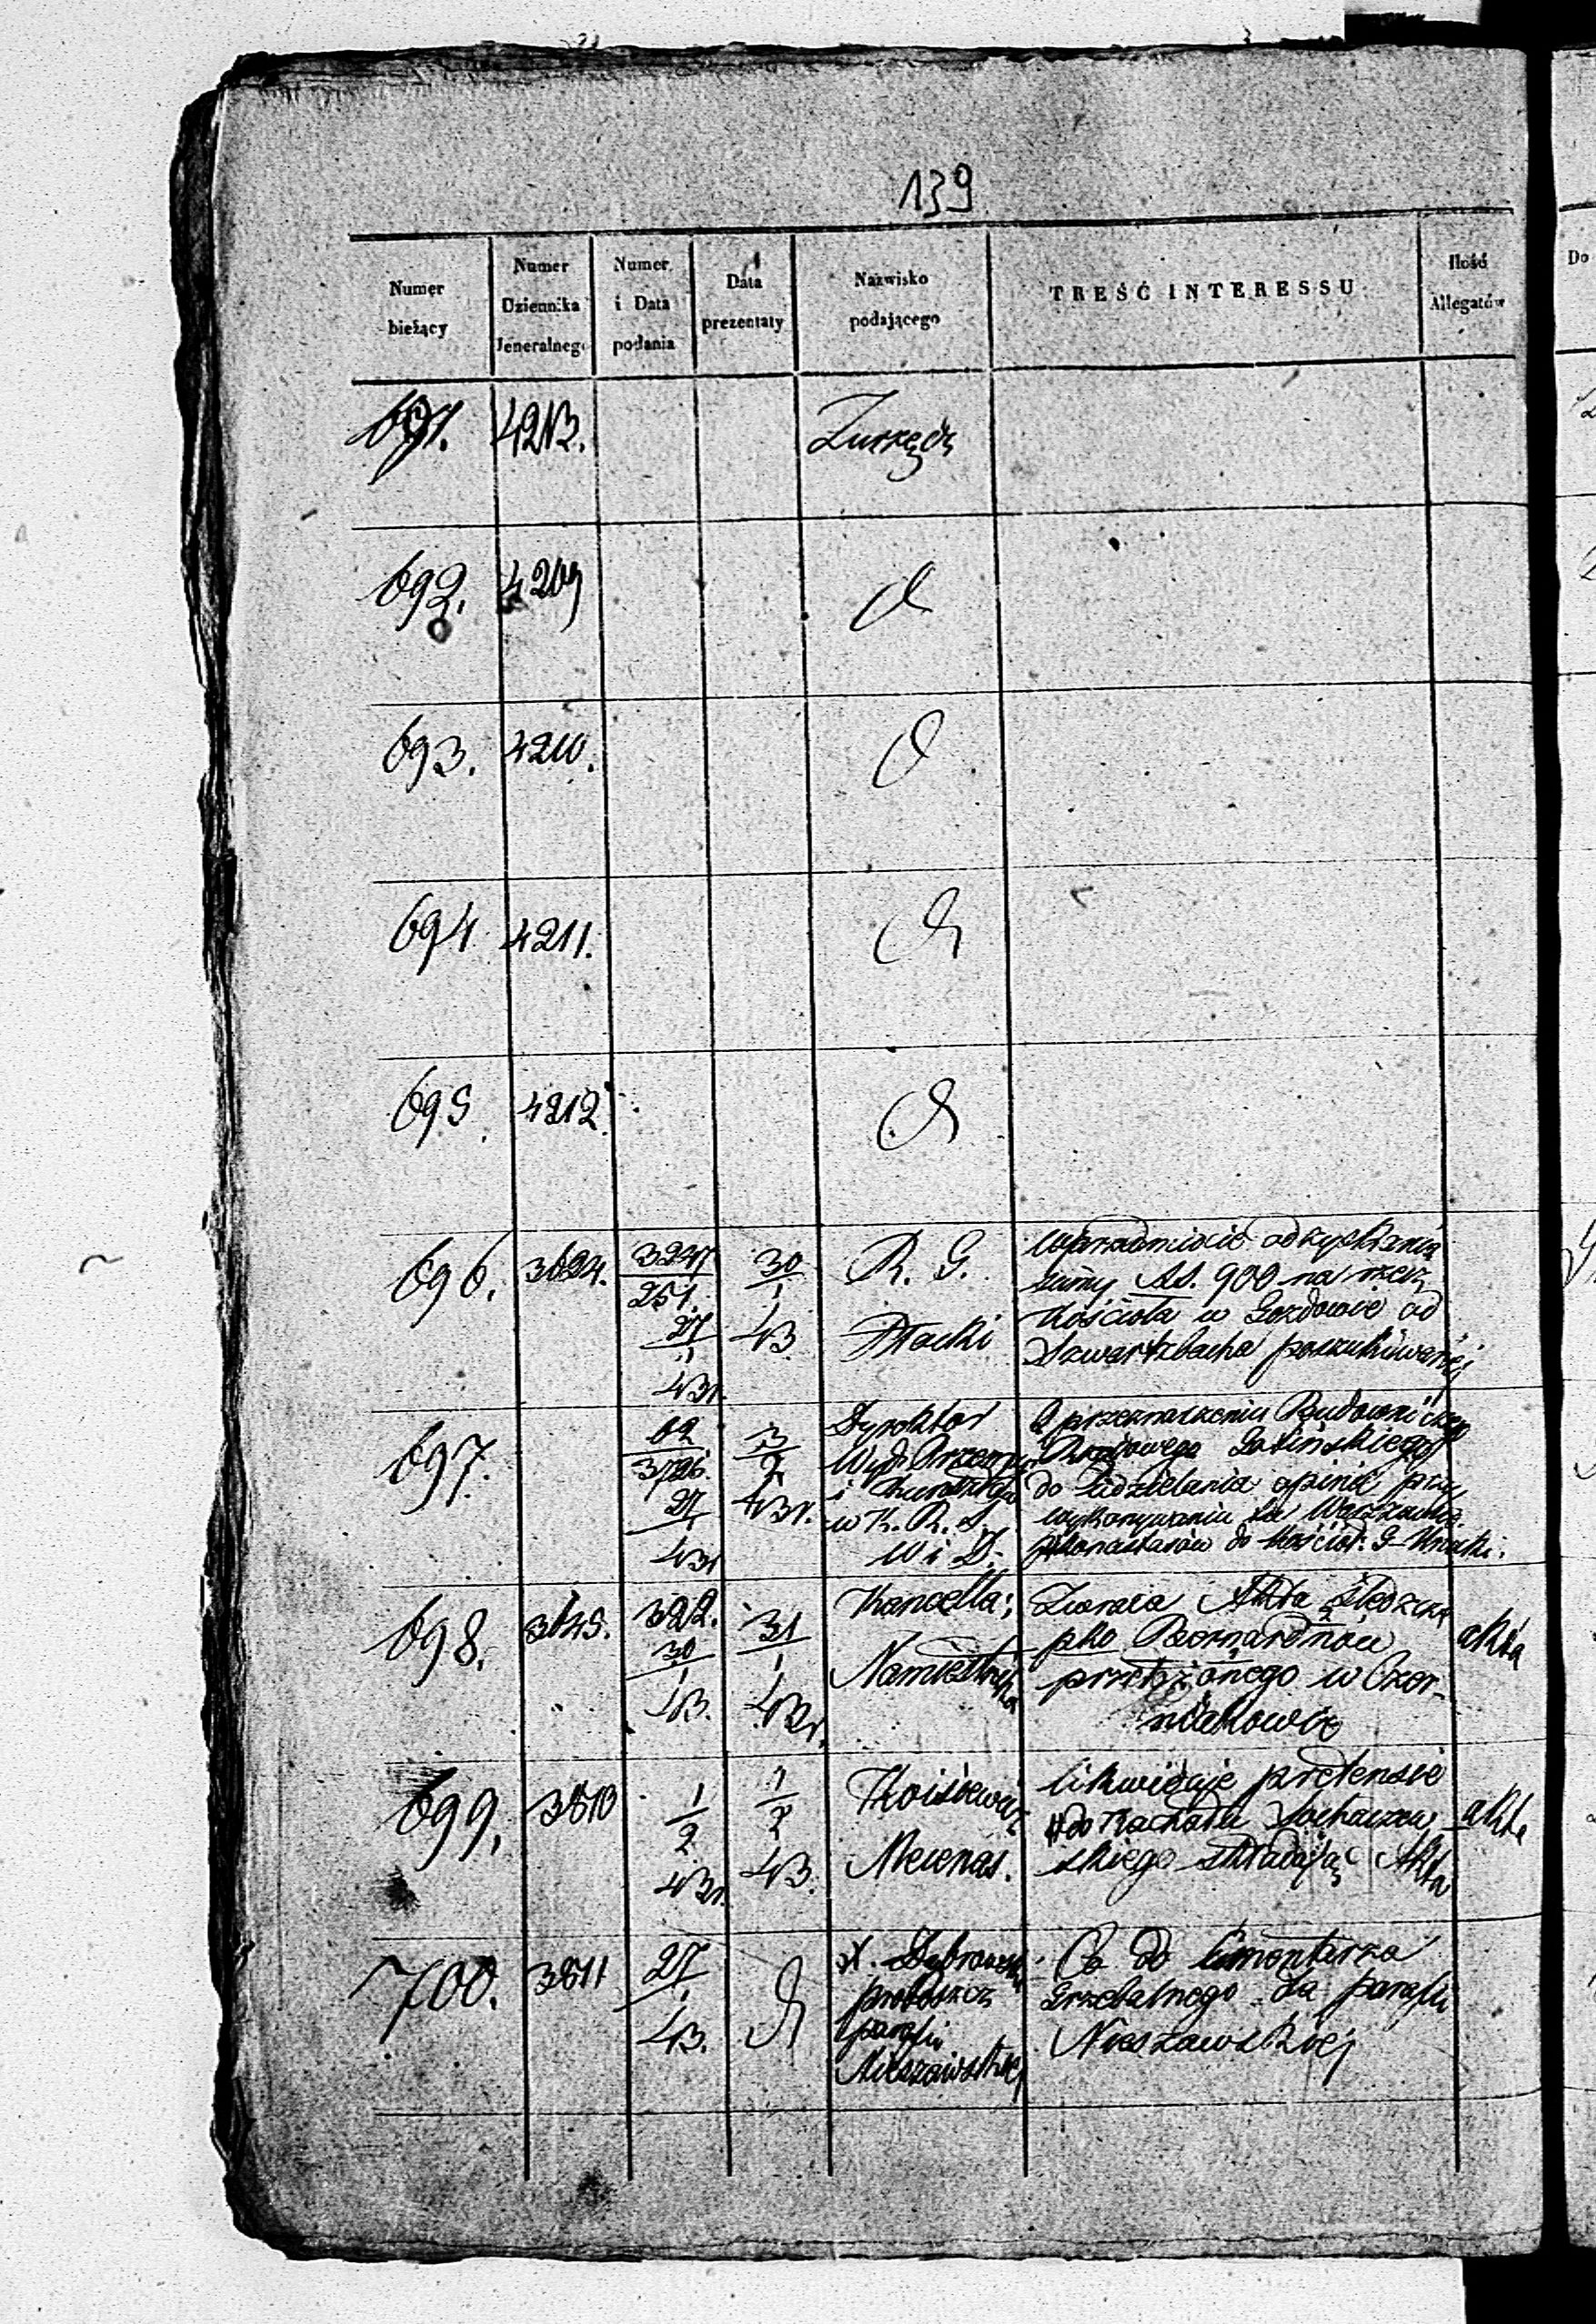 139
Numer bieżący
Numer Dziennika Jeneralnego
Numer i Data podania
Data prezentaty
Nazwisko podającego
TREŚĆ INTERESSU
Ilość Allegatów
Do
691. 4213. Zurzędu
692. 4209
693. 4210.
694 4211.
695 4212.
696. 3624. 3247 251 27/1 43r. 30/1 43
R. G.
Płocki
odzyskania
sumy RS. 900 na rzecz
Kościoła w Gozdowie od
Szwartzbacha poszukiwanéj
697. 62 3726 27/1 43r 3/2 43r.
Dyrektor
Wydz. Przemysłu
i Kunsztów
w K. R. S.
W i D.
O przeznaczeniu Budowniczego
Rządowego
do udzielania opinii przy
wykonywaniu
do Kościoł. G-
698. 3645. 322. 30/1 43. 31/1 43r.
Kancella:
Namiestnika
Zwraca Akta śledcze
pko Bernardynów
przełożonego w Czer-
niakowie
akta
699. 3810 1/2 43r. 1/2 43.
Mecenas.
likwiduje pretensie
do Kachału Sochaczew
skiego składając Akta
akta
700. 3811 27/1 43.
X. Dąbrowski
proboszcz
parafii
Nieszawskiej
Co do cmentarza
Grzebalnego dla parafii
Nieszawskiej